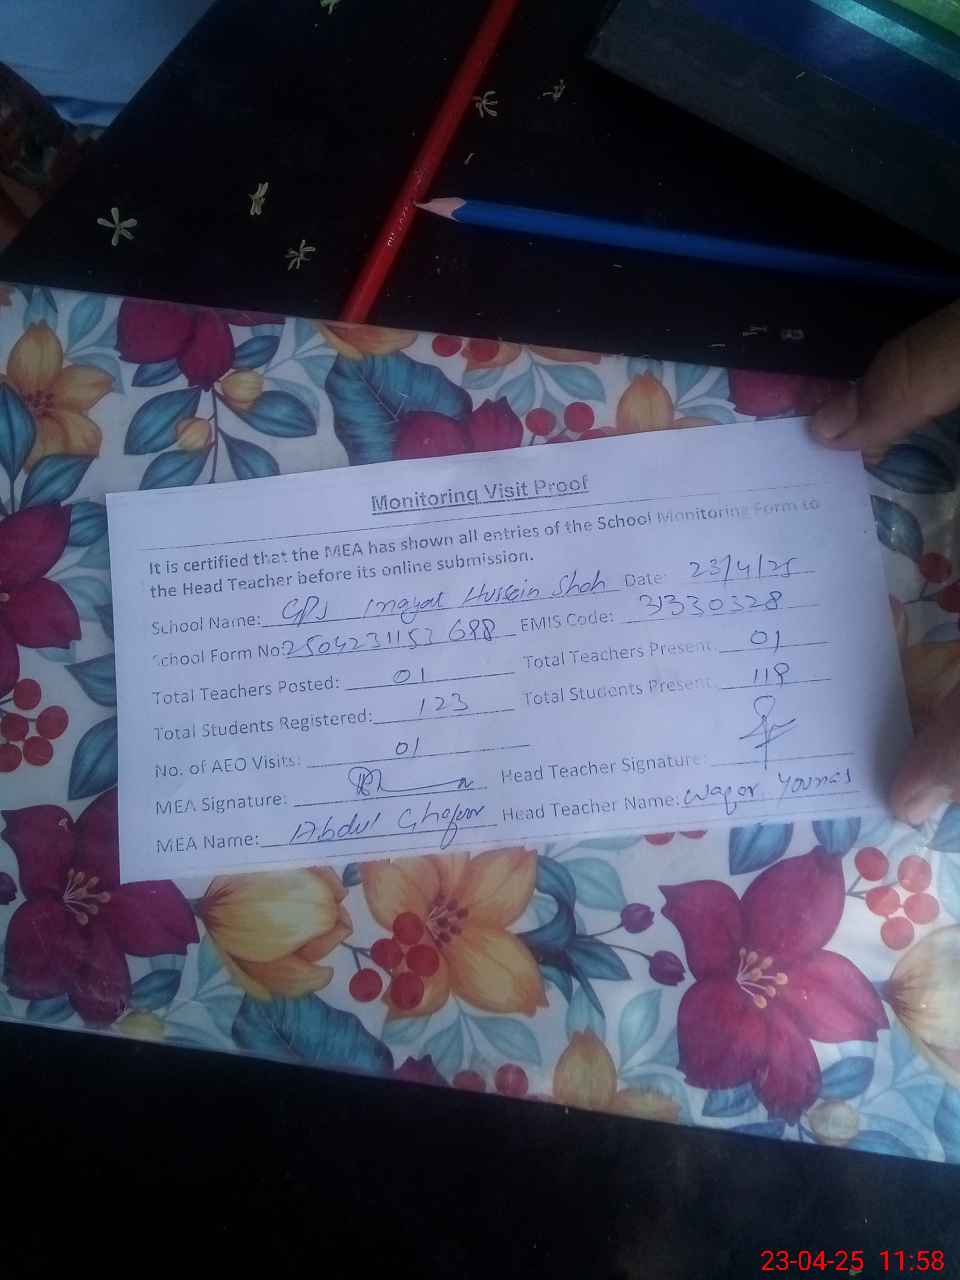 Monitoring Visit Proof
It is certified that the MEA has shown all entries of the School Monitoring Form to
the Head Teacher before its online submission.
School Name: GPS Inayat Hussain Shah Date: 23/4/25
School Form No: 2504231153688 EMIS Code: 31330328
Total Teachers Posted: 01 Total Teachers Present: 01
Total Students Registered: 123 Total Students Present: 118
No. of AEO Visits: 01
MEA Signature: Head Teacher Signature:
MEA Name: Abdul Ghafoor Head Teacher Name: Waqar Younas
23-04-25 11:58